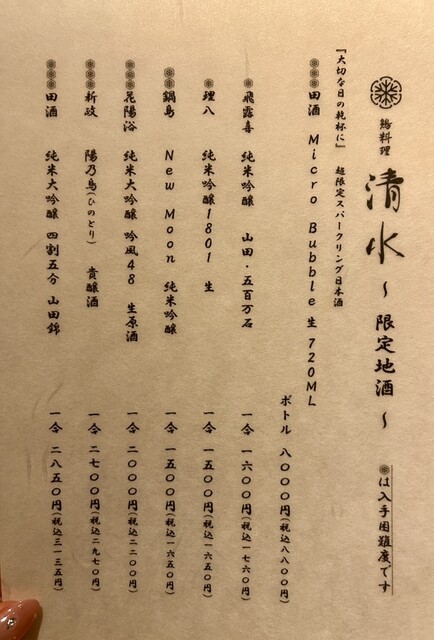 鶏料理 清水 ～限定地酒～
は入手困難度です
『大切な日の乾杯に』 超限定スパークリング日本酒
田酒 Micro Bubble 生 720ML
ボトル 八〇〇〇円(税込八八〇〇円)
飛露喜 純米吟醸 山田・五百万石 一合 一六〇〇円(税込一七六〇円)
理八 純米吟醸1801 生 一合 一五〇〇円(税込一六五〇円)
鍋島 New Moon 純米吟醸 一合 一五〇〇円(税込一六五〇円)
花陽浴 純米大吟醸 吟風48 生原酒 一合 二〇〇〇円(税込二二〇〇円)
新政 陽乃鳥(ひのとり) 貴醸酒 一合 二七〇〇円(税込二九七〇円)
田酒 純米大吟醸 四割五分 山田錦 一合 二八五〇円(税込三一三五円)